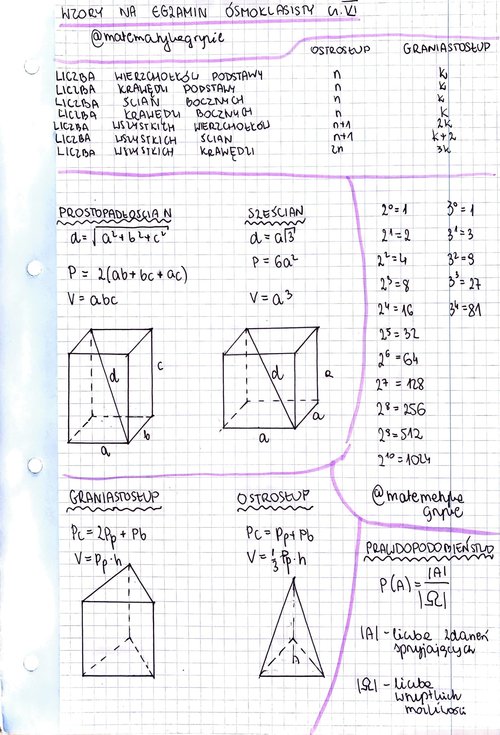 WZORY NA EGZAMIN ÓSMOKLASISTY cz. VI
@matematykagryzie
OSTROSŁUP GRANIASTOSŁUP
LICZBA WIERZCHOŁKÓW PODSTAWY n k
LICZBA KRAWĘDZI PODSTAWY n k
LICZBA ŚCIAN BOCZNYCH n k
LICZBA KRAWĘDZI BOCZNYCH n k
LICZBA WSZYSTKICH WIERZCHOŁKÓW n+1 2k
LICZBA WSZYSTKICH ŚCIAN n+1 k+2
LICZBA WSZYSTKICH KRAWĘDZI 2n 3k
PROSTOPADŁOŚCIAN
d = √a²+b²+c²
P = 2(ab+bc+ac)
V = abc
d
c
b
a
SZEŚCIAN
d = a√3
P = 6a²
V = a³
d
a
a
a
2⁰=1 3⁰=1
2¹=2 3¹=3
2²=4 3²=9
2³=8 3³=27
2⁴=16 3⁴=81
2⁵=32
2⁶=64
2⁷=128
2⁸=256
2⁹=512
2¹⁰=1024
@matematyka
gryzie
GRANIASTOSŁUP
Pc = 2Pp + Pb
V = Pp·h
OSTROSŁUP
Pc = Pp+Pb
V = 1/3 Pp·h
PRAWDOPODOBIEŃSTWO
P(A) = |A|/|Ω|
|A| - liczba zdarzeń
sprzyjających
|Ω| - liczba
wszystkich
możliwości